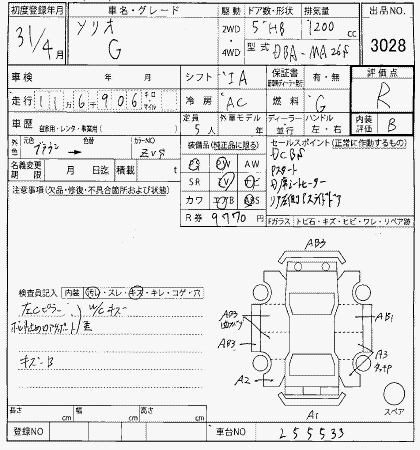 初度登録年月 車名・グレード 駆動 ドア数・形状 排気量 出品NO.
31/4月 ソリオ G 2WD 4WD 5 HB 1200 cc 3028
型式 DBA-MA26S
車検 年 月 シフト IA 保証書 有・無 評価点 R
走行 11万6千906 キロ マイル 冷房 AC 燃料 G
車歴 自家用・レンタ・事業用( ) 定員 5人 外車モデル 年 ディーラー 並行 ハンドル 左・右 内装評価 B
外色 元色 ブラウン 色替 カラーNO ZVS 装備品(純正品に限る) セールスポイント(正常に作動するもの)
名義変更期限 月 日迄 積載 t PS PW AW DCBS
注意事項(欠品・修復・不具合箇所および状態) SR Pスタート
カワ ABS
R券 9970円 Fガラス:トビ石・キズ・ヒビ・ワレ・リペア跡
AB3
検査員記入 内装 汚れ・スレ・キズ・キレ・コゲ・穴
W/Cキズ
AB3 AB1
AB3
キズ-B A3
A2
A1 スペア
長さ cm 幅 cm 高さ cm
登録NO 車台NO 255533